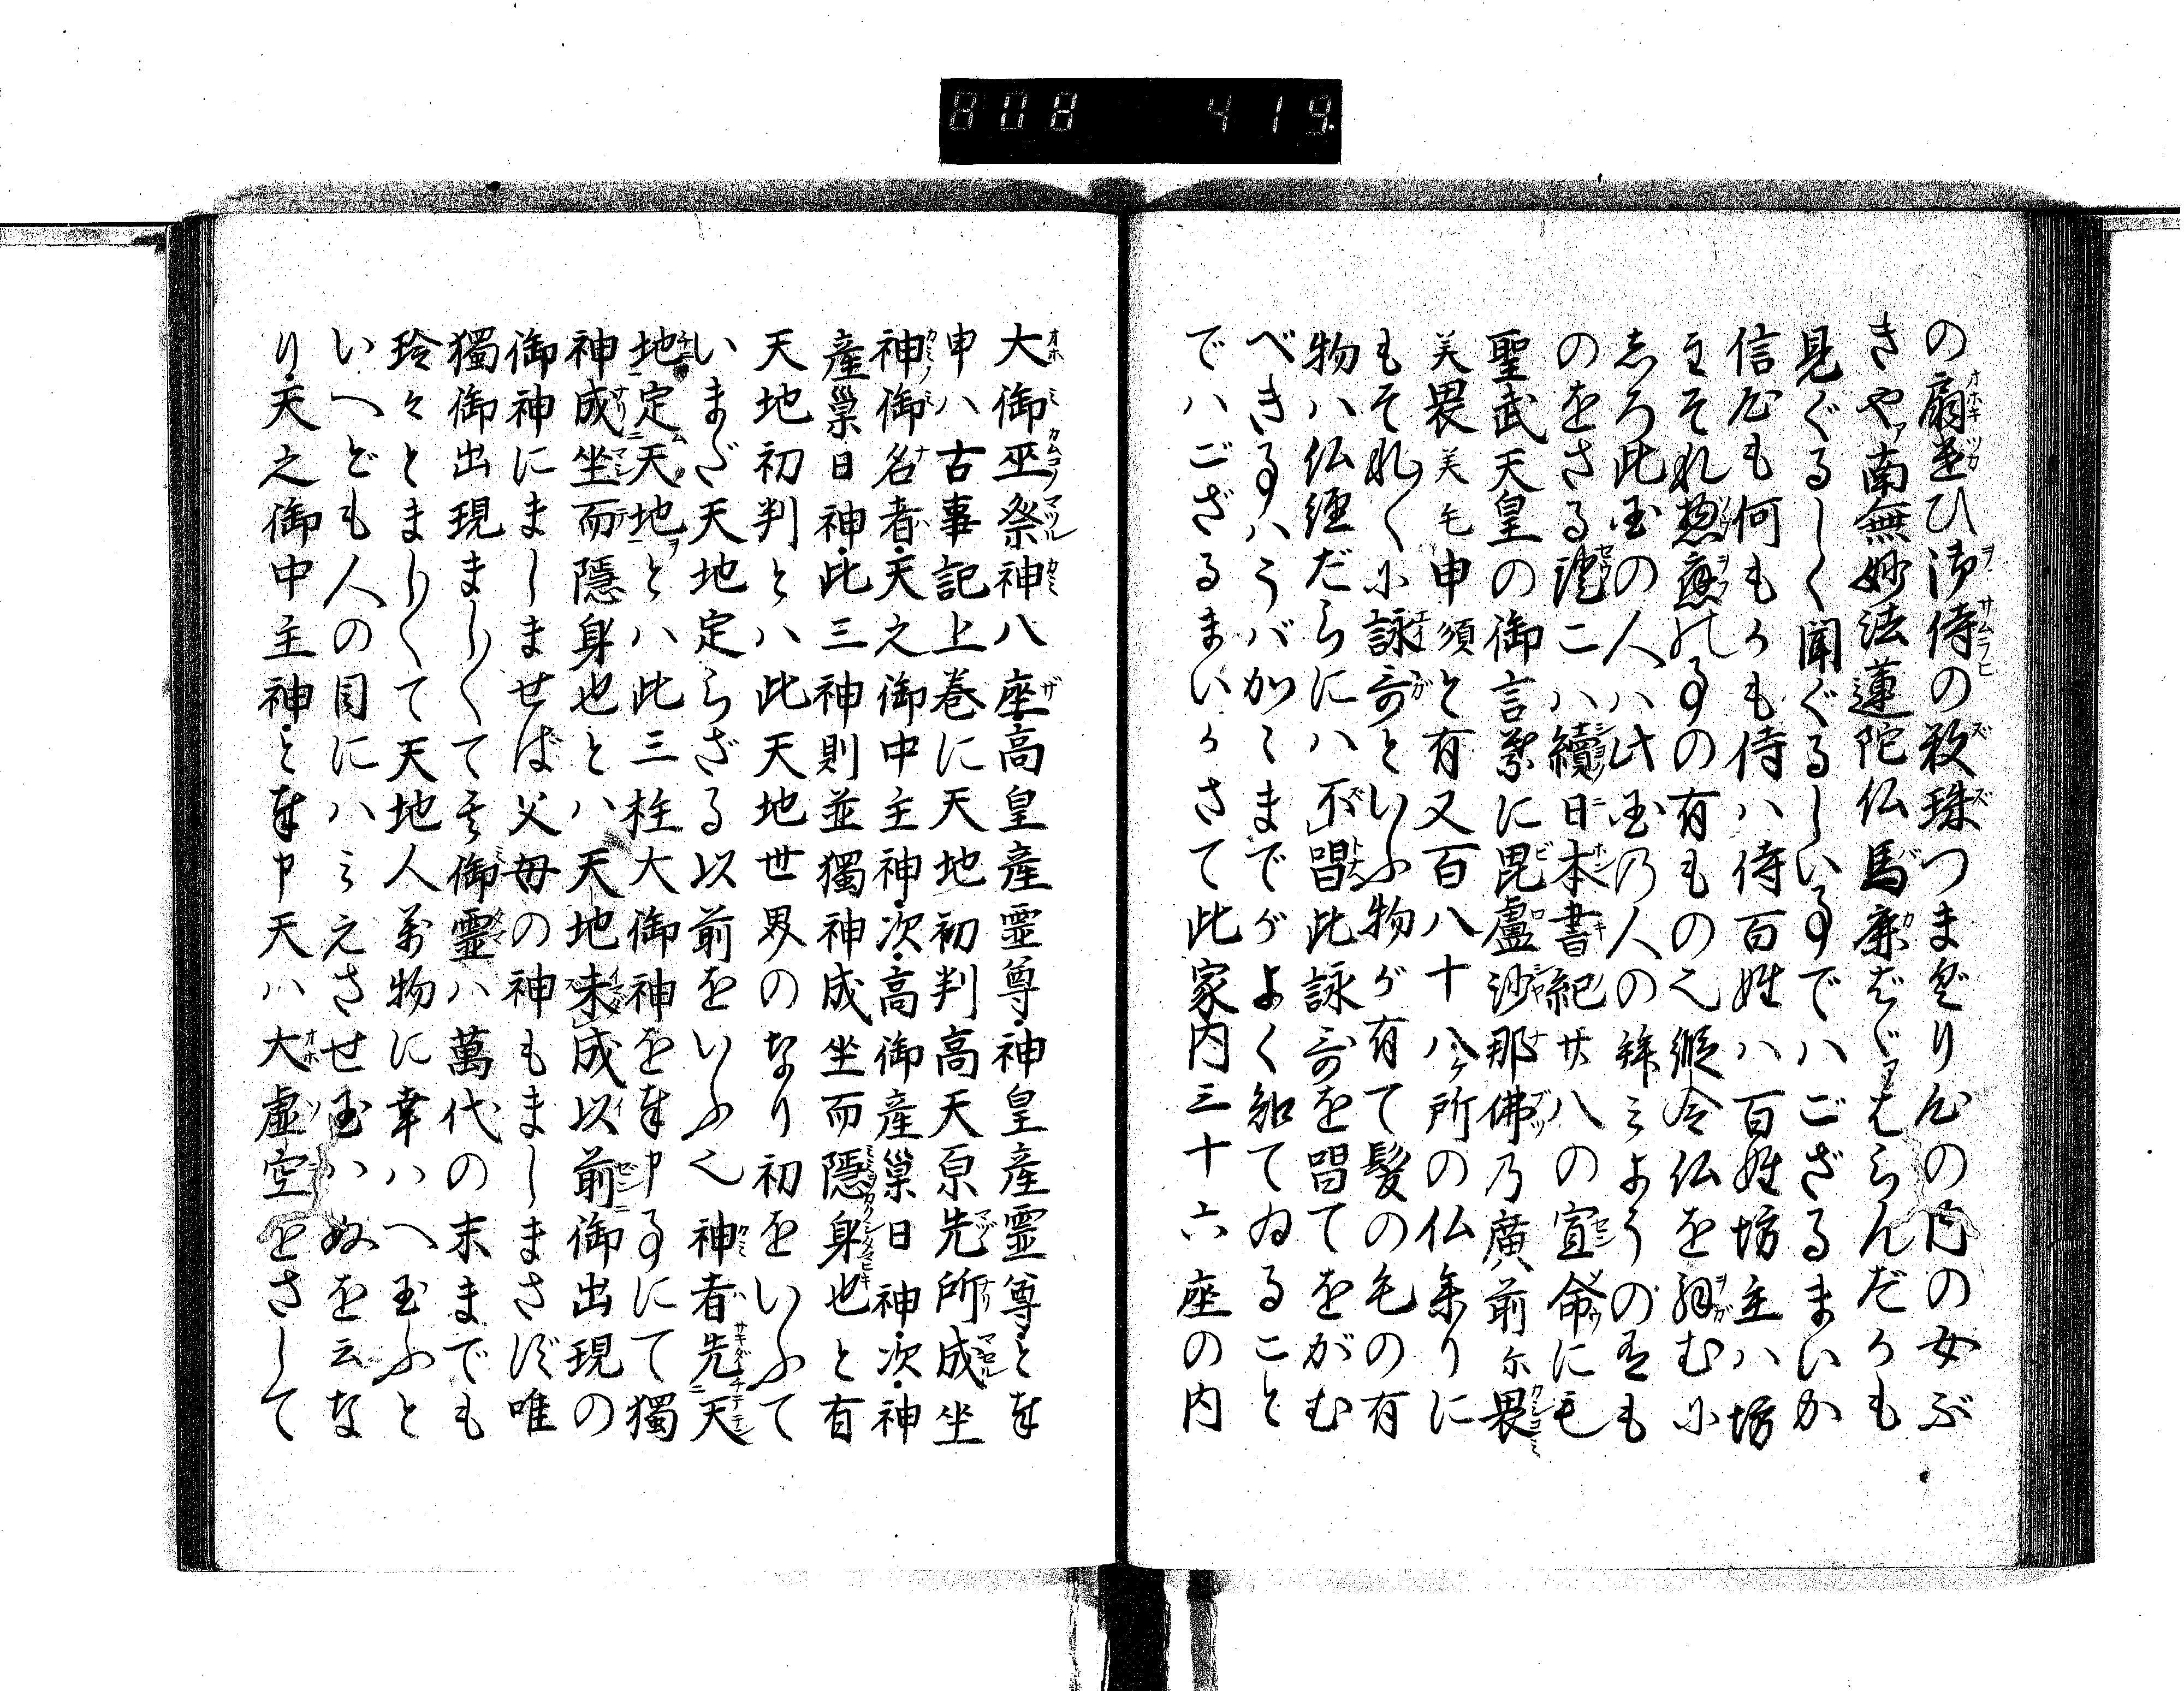 808 419.
の扇をひ御侍の数珠つまぐり尼の内の女ぶ
きや南無妙法蓮陀仏馬鹿をぐはらんだりも
見ぐるしく聞ぐるしい事でハござるまいか
信心も何もりも侍ハ侍百姓ハ百姓坊主ハ坊
主それ〳〵應の事の有もの也縦令仏を拝む小
志ろ此国の人ハ此国乃人の拝ミようの有も
のをさる證ニハ續日本書紀廿八の宣命にも
聖武天皇の御言葉に毘盧沙那佛乃廣前尓畏
美畏美毛申須と有又百八十八ヶ所の仏参りに
もそれ〳〵小詠哥といふ物が有て髪の毛の有
物ハ仏經だらにハ不唱此詠哥を唱てをがむ
べき事ハうバかゝまでがよく知てゐること
でハござるまいかさて此家内三十六座の内
大御巫祭神八座高皇産霊尊神皇産霊尊と申
申ハ古事記上巻に天地初判高天原先所成坐
神御名者天之御中主神次高御産巣日神次神
産巣日神此三神則並獨神成坐而隠身也と有
天地初判とハ此天地世界のなり初をいふて
いまだ天地定らざる以前をいふ也神者先天
地定天地とハ此三柱大御神を申事にて獨
神成坐而隠身也とハ天地未成以前御出現の
御神にましませば父母の神もましまさず唯
獨御出現まし〳〵て其御霊ハ萬代の末までも
玲々とまし〳〵て天地人萬物に幸ハへ玉ふと
いへども人の目にハミえさせ玉ハぬを云な
り天之御中主神と申天ハ大虚空をさして